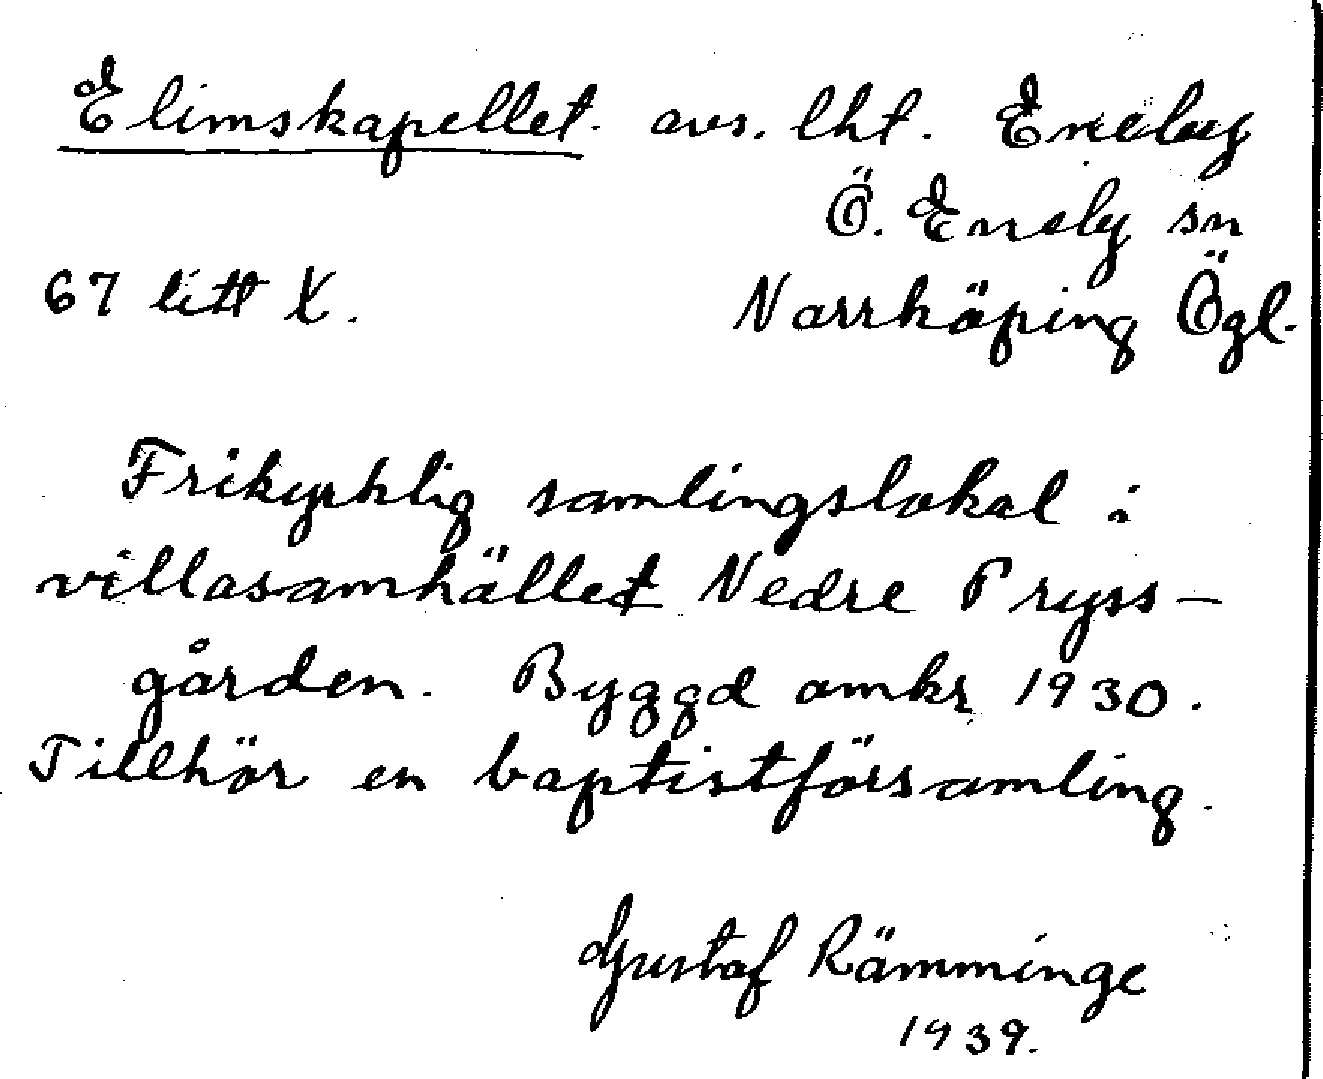 Elimskapellet. avs. lht. Eneby
Ö. Eneby sn
67 litt X. Norrköping Ögl.
Frikyrklig samlingslokal i
villasamhället Nedre Pryss-
gården. Byggd omkr 1930.
Tillhör en baptistförsamling.
Gustaf Rämminge
1939.